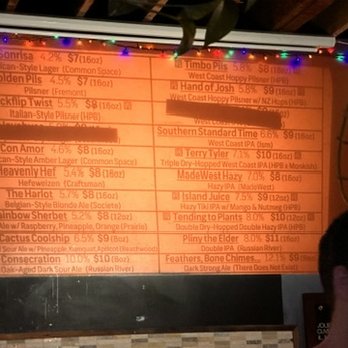 Sonrisa 4.2% $7(16oz)
ican-Style Lager (Common Space)
olden Pils 4.5% $7 (16oz)
Pilsner (Fremont)
ckflip Twist 5.5% $8 (16oz)
Italian-Style Pilsner (HPB)
Con Amor 4.6% $8 (16oz)
ican-Style Amber Lager (Common Space)
Heavenly Hef 5.4% $8 (16oz)
Hefeweizen (Craftsman)
The Harlot 5.7% $8 (16oz)
Belgian-Style Blonde Ale (Societe)
ainbow Sherbet 5.2% $8 (12oz)
Ale w/Raspberry, Pineapple, Orange (Prairie)
Cactus Coolship 6.5% $9 (8oz)
Sour Ale w/Prickly
Consecration 10.0% $10 (8oz)
Oak-Aged Dark Sour Ale (Russian River)
Timbo Pils 5.8% $8 (16oz)
West Coast Hoppy Pilsner (HPB)
Hand of Josh 5.8% $9 (16oz)
West Coast Hoppy Pilsner w/ NZ Hops (HPB)
Southern Standard Time 6.6% $9 (16oz)
West Coast IPA (Ism)
Terry Tyler 7.1% $10 (16oz)
Triple Dry-Hopped West Coast IPA (HPB x Monkish)
MadeWest Hazy 7.0% $8 (16oz)
Hazy IPA (MadeWest)
Island Juice 7.5% $9 (12oz)
Hazy Tiki IPA w/ Mango & Nutmeg (HPB)
Tending to Plants 8.0% $10 (12oz)
Double Dry-Hopped Double Hazy IPA (HPB)
Pliny the Elder 8.0% $11 (16oz)
Double IPA (Russian River)
Feathers, Bone Chimes... 12.1% $9 (8oz)
Dark Strong Ale (There Does Not Exist)